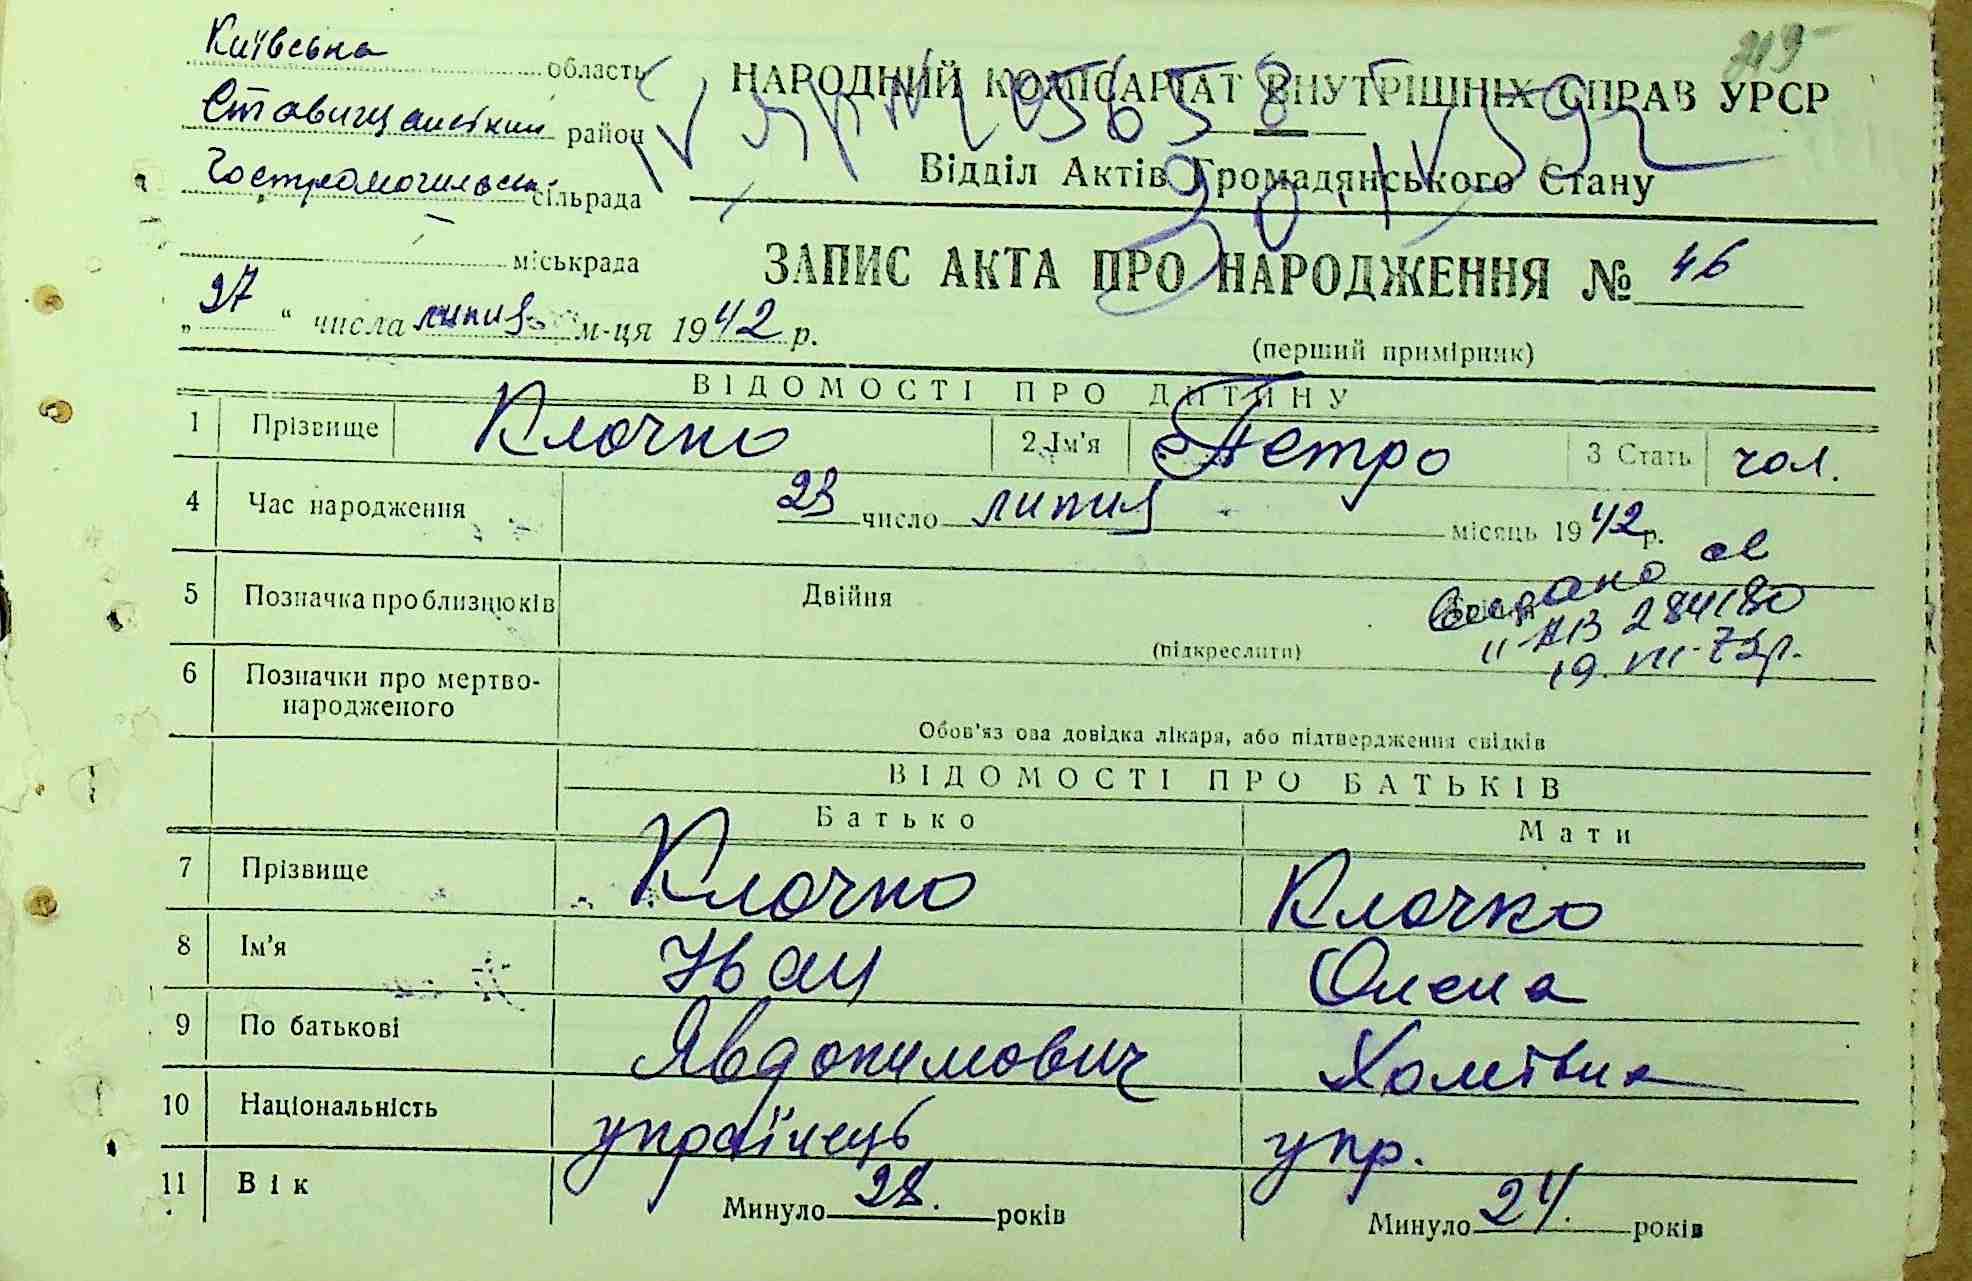 Київська область
Ставищанський район
Гостромогильська сільрада
міськрада
„27“ числа липня м-ця 1942 р.
219
НАРОДНИЙ КОМІСАРІАТ ВНУТРІШНІХ СПРАВ УРСР
Відділ Актів Громадянського Стану
ЗАПИС АКТА ПРО НАРОДЖЕННЯ № 46
(перший примірник)
ВІДОМОСТІ ПРО ДИТИНУ
1 Прізвище Клочко 2. Ім'я Петро 3 Стать чол.
4 Час народження 23 число липня місяць 1942 р.
5 Позначка про близнюків Двійня
(підкреслити)
Видано св
"АВ 284180
19. VII-73р.
6 Позначки про мертво-
народженого
Обов'яз ова довідка лікаря, або підтвердження свідків
ВІДОМОСТІ ПРО БАТЬКІВ
Батько Мати
7 Прізвище Клочко Клочко
8 Ім'я Іван Олена
9 По батькові Явдокимович Хомівна
10 Національність українець укр.
11 Вік Минуло 28. років Минуло 24. років